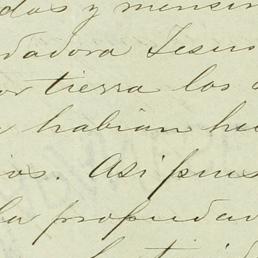 das y mensu
dadora Jesus
por tierra los
habian hu
ios. Asi pues
la propiedad